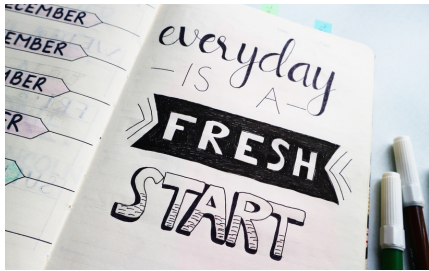 CEMBER
EMBER
MBER
ER
everyday
IS A
FRESH
START